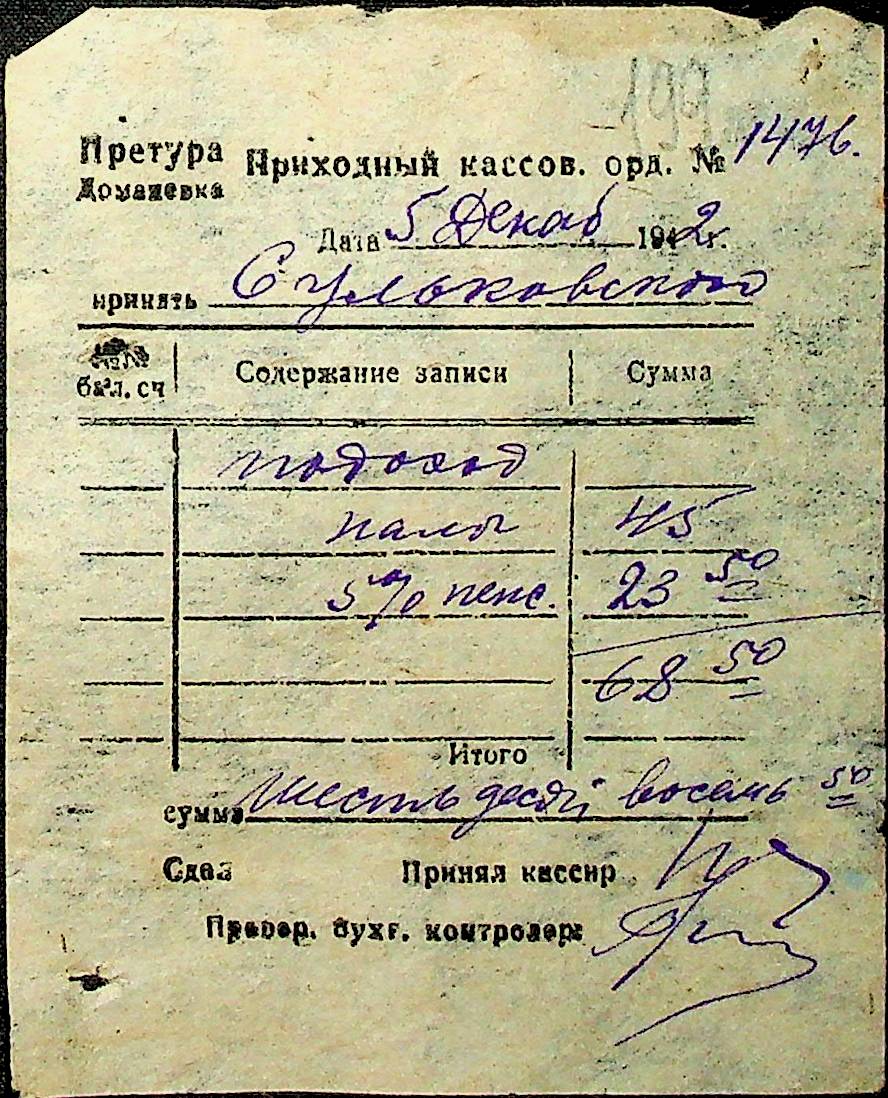 199
Претура Приходный кассов. орд. № 1476.
Доманевка
Дата 5 Декаб 1942г.
принять Сульковского
бал. сч Содержание записи Сумма
подоход
нало 45
5% пенс. 23 50
68 50
Итого
сумма Шестьдесят восемь 50
Сдал Принял кассир
Провер. бухг. контролер: